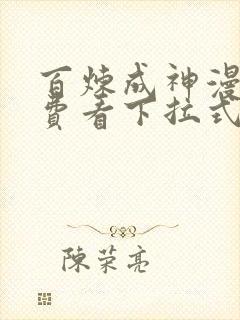 百炼成神漫
费看下拉式
陳荣亮